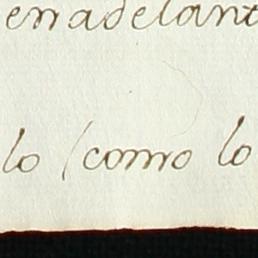 enadelant
lo (como lo